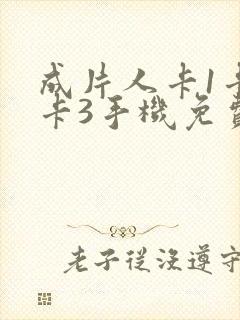 成片人卡1卡
卡3手機免費
老子從沒遵守